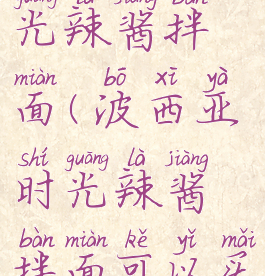 guāng là jiàng bàn
光辣酱拌
miàn bō xī yà
面(波西亚
shí guāng là jiàng
时光辣酱
bàn miàn kě yǐ mǎi
拌面可以买